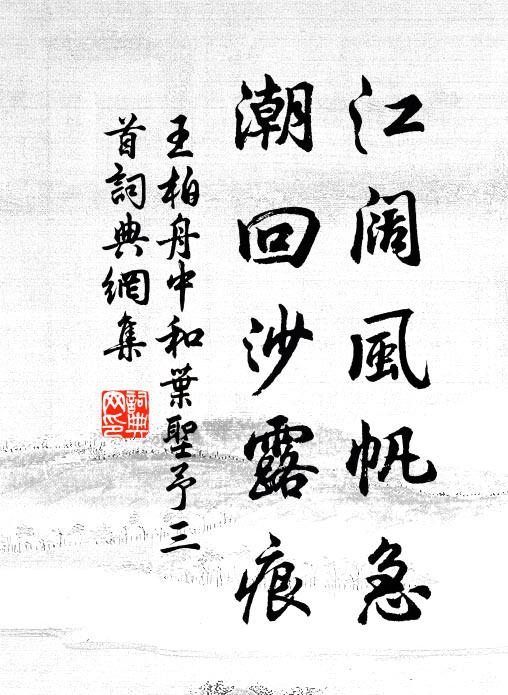 江阔風帆急
潮回沙露痕
王柏舟中和葉聖予三
首詞典網集
詞典
网印